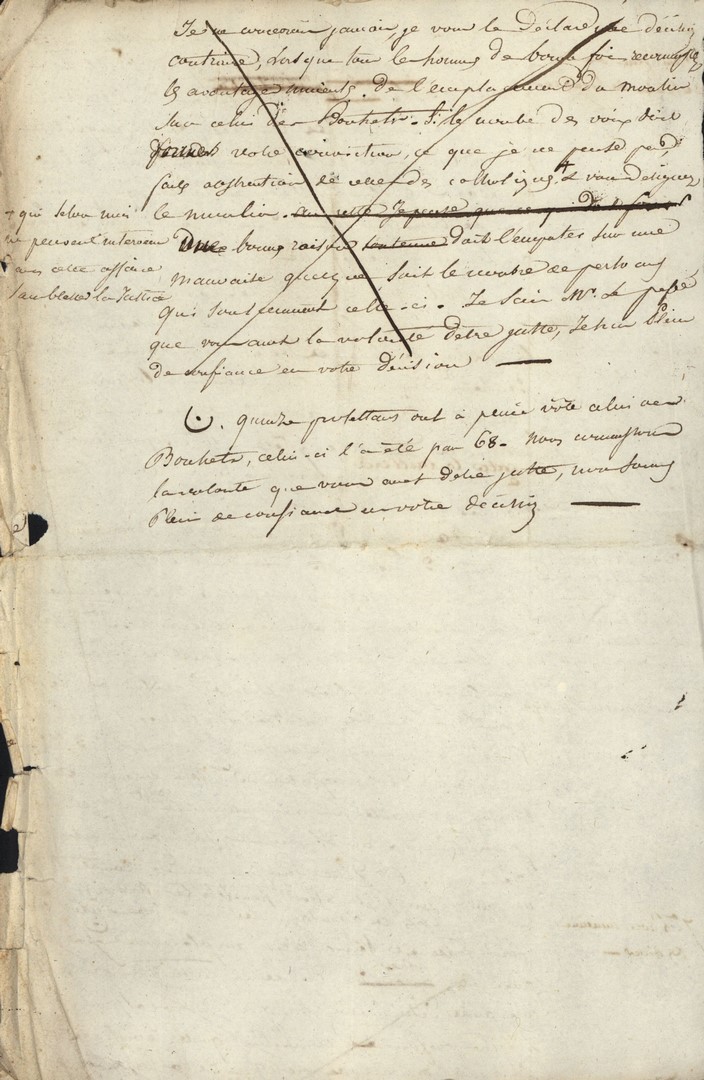 Je ne croirai jamais je vous le Déclare, une décision
contraire, Lorsque tous les hommes de bonne foi reconnaissent
les avantages de l'emplacement du moulin
sur celui des Bouhets. Si le nombre des voix doit
former votre conviction, ce que je ne pense pas,
fais abstraction de celle des catholiques + vous
le moulin.
+ qui selon moi
ne peuvent intervenir
Dans cette affaire
sans blesser la Justice
Une bonne raison doit l'emporter sur une
mauvaise quelque soit le nombre de personnes
qui soutiennent celle-ci. Je sais Mr. Le préfet
que vous avez la volonté d'être juste, Je suis plein
de confiance en votre décision —
quinze protestans ont à peine voté celui des
Bouhets, celui-ci l'a été par 68. Nous connaissons
la volonté que vous avez d'être juste, nous sommes
plein de confiance en votre décision —